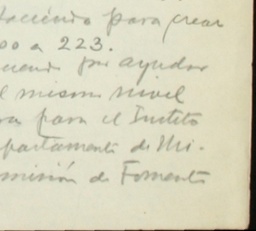 haciendo para crear
00 a 223.
por ayudar
l mismo nivel
ra para el Instito
partamento de Mi-
misión de Fomento